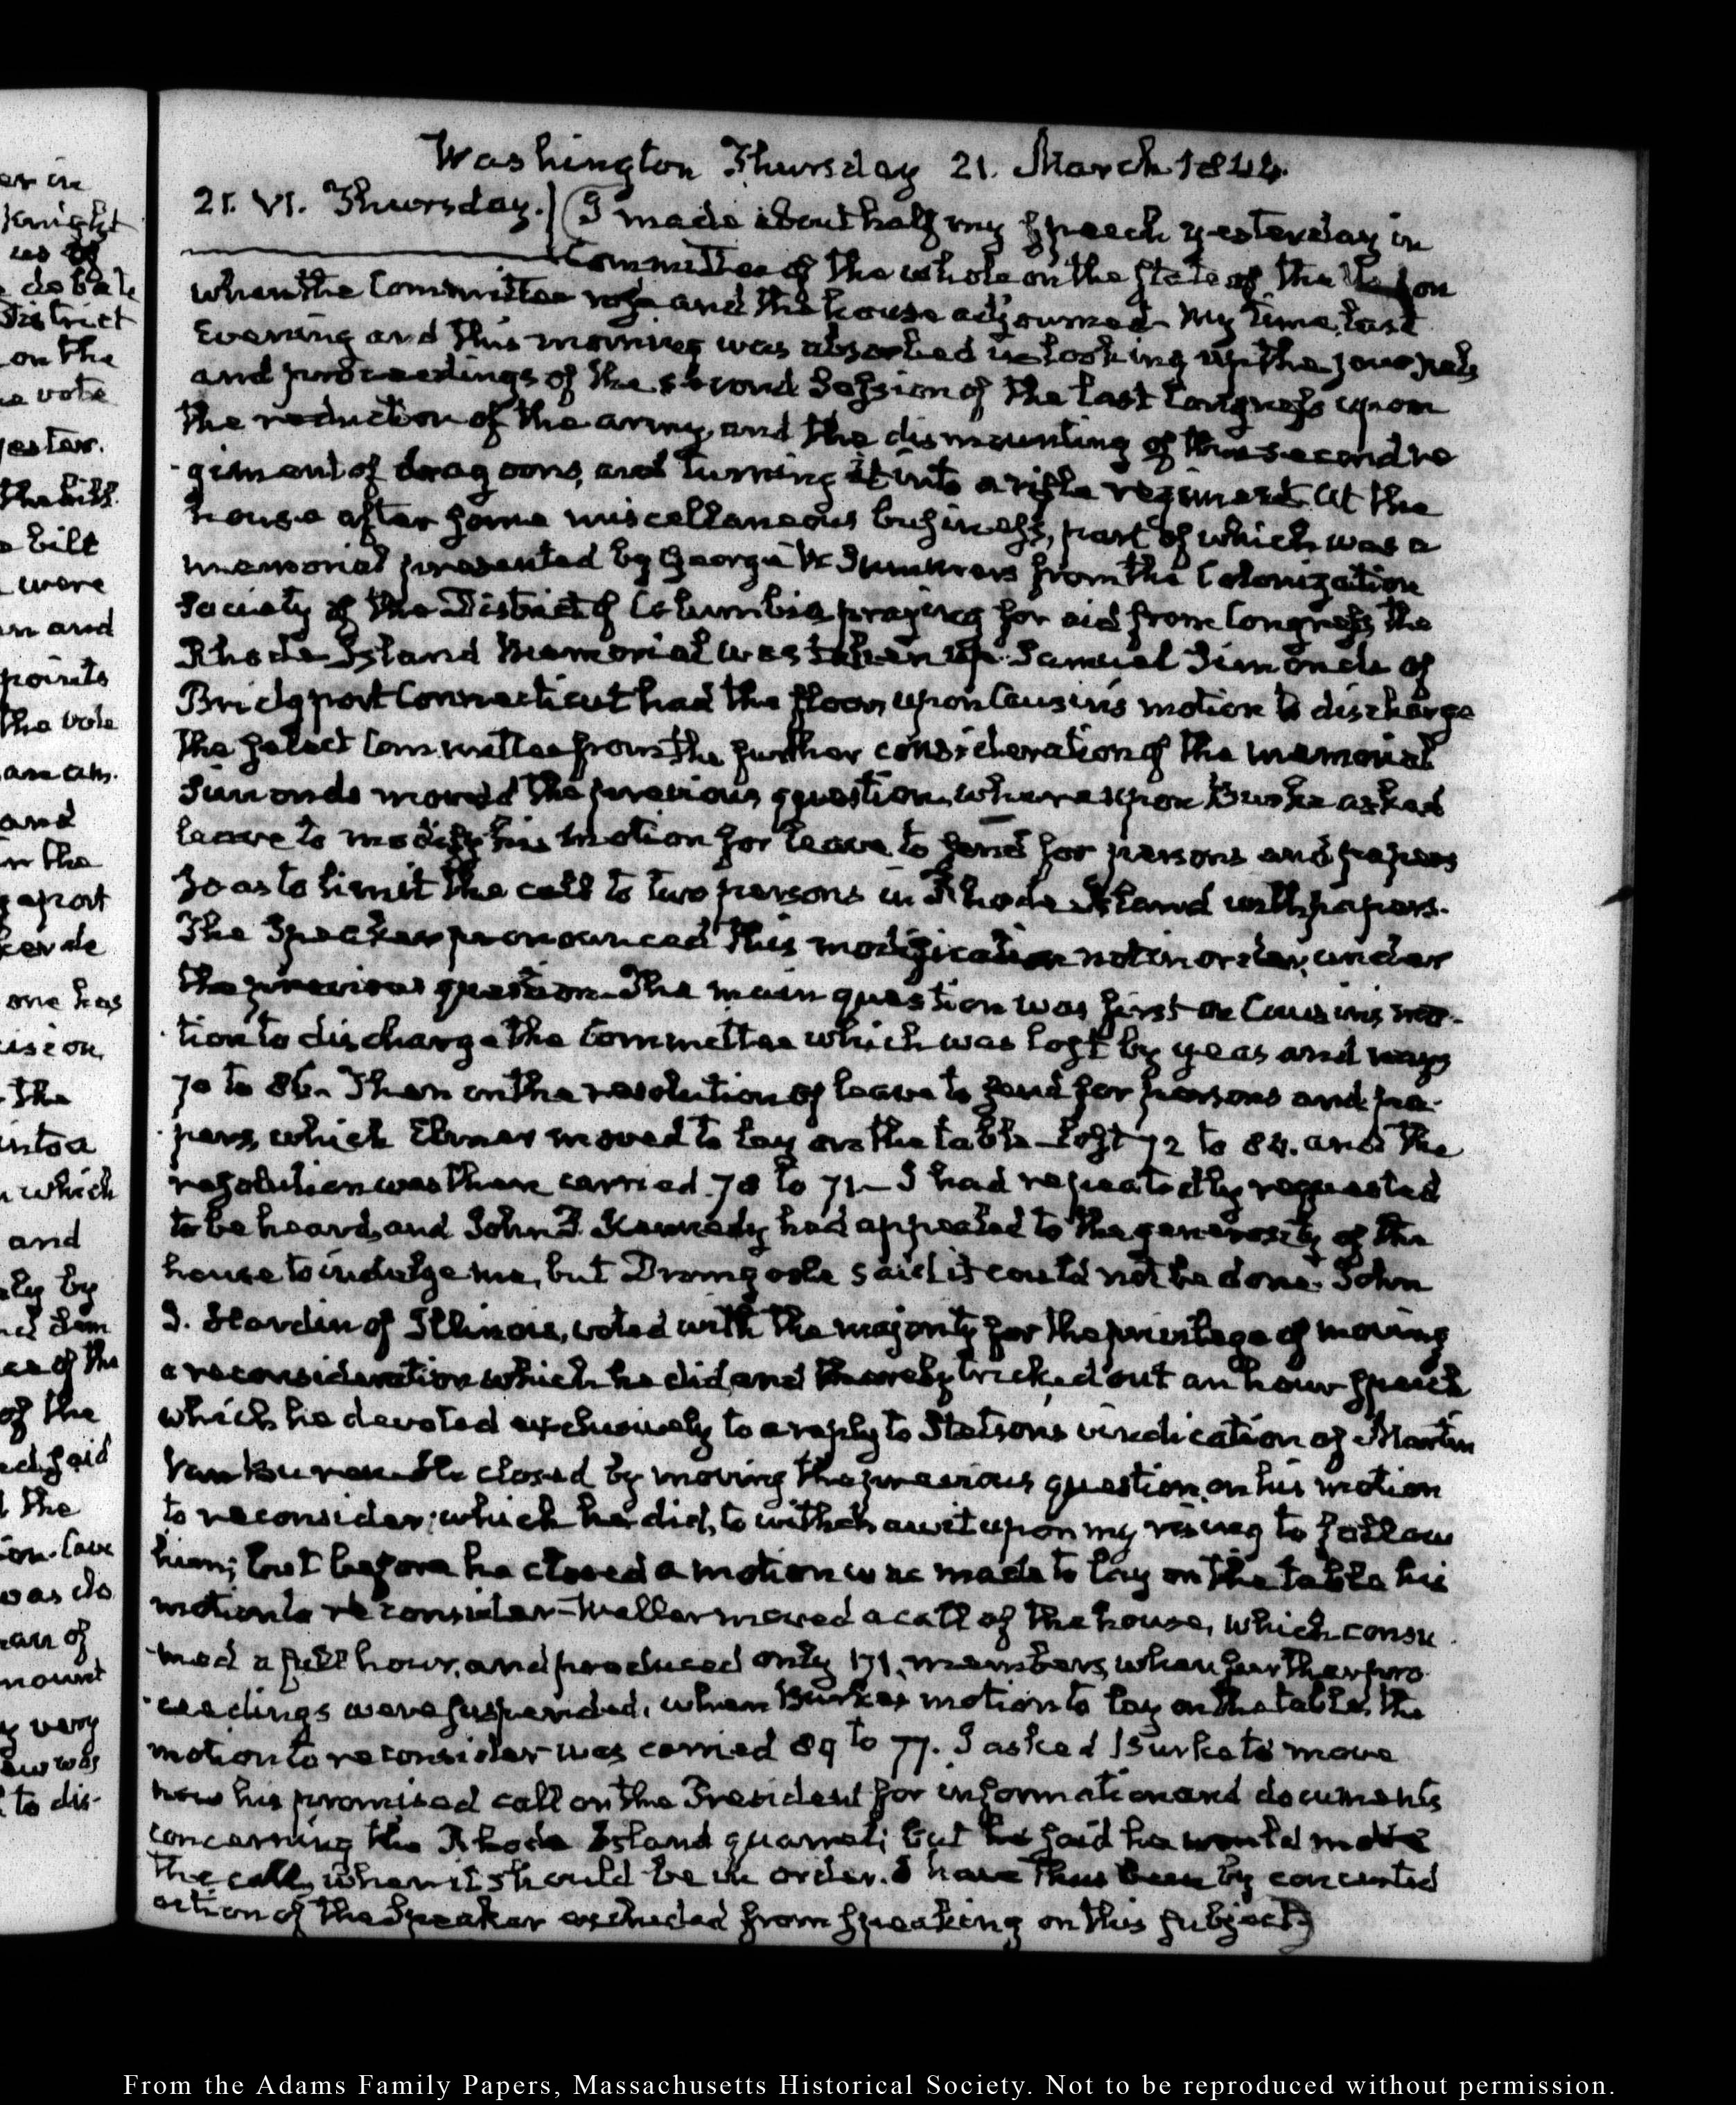 Washington Thursday 21. March 1844.
21. VI. Thursday. I made about half my Speech yesterday in
Committee of the whole on the State of the Union
when the Committee rose and the house adjourned. My time last
Evening and this morning was absorbed in looking up the journals
and proceedings of the second Session of the last Congress upon
the reduction of the army, and the dismounting of the second re
giment of dragoons, and turning it into a rifle regiment. At the
house after some miscellaneous business, part of which was a
memorial presented by George W Summers from the Colonization
Society of the District of Columbia praying for aid from Congress the
Rhode Island Memorial was taken up. Samuel Simonds of
Bridgport Connecticut had the floor, upon Causin's motion to discharge
the select Committee from the further consideration of the memorial
Simonds moved the previous question, whereupon Burke asked
leave to modify his motion for leave to send for persons and papers
so as to limit the call to two persons in Rhode Island with papers.
The Speaker pronounced this modification not in order, under
the previous question. The main question was first on Causins mo-
tion to discharge the Committee which was lost by yeas and nays
70 to 86. Then on the resolution of leave to send for persons and pa-
pers, which Elmer moved to lay on the table lost 72 to 84. and the
resolution was then carried 78 to 71 — I had repeatedly requested
to be heard, and John P. Kennedy had appealed to the generosity of the
house to indulge me, but Dromgoole said it could not be done. John
J. Hardin of Illinois, voted with the majority for the privilege of moving
a reconsideration which he did, and thereby tricked out an hour speech
which he devoted exclusively to a reply to Stetsons vindication of Martin
Van Buren. He closed by moving the previous question, on his motion
to reconsider; which he did, to withdraw it upon my rising to follow
him; but before he closed a motion was made to lay on the table his
motion to reconsider — Weller moved a call of the house, which consu
med a full hour, and produced only 171. members, when further pro
ceedings were suspended, when Burkes motion to lay on the table, the
motion to reconsider was carried 89 to 77. I asked Burke to move
now his promised call on the President for information and documents
concerning the Rhode Island quarrel; but he said he would move
the call, when it should be in order. I have thus been by concerted
action of the Speaker excluded from speaking on this subject)
From the Adams Family Papers, Massachusetts Historical Society. Not to be reproduced without permission.